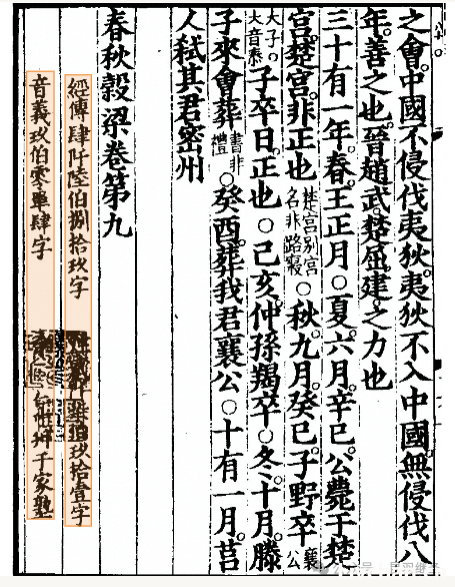 之會中國不侵伐夷狄夷狄不入中國無侵伐八
年善之也晉趙武楚屈建之力也
三十有一年春王正月○夏六月辛巳公薨于楚
宮楚宮非正也楚宮別宮名非路寢○秋九月癸巳子野卒襄公
大子大音泰子卒日正也○己亥仲孫羯卒○冬十月滕
子來會葬書非禮○癸酉葬我君襄公○十有一月莒
人弒其君密州
春秋穀梁卷第九
經傳肆阡陸伯捌拾玖字 玖拾壹字
音義玖伯零單肆字 于家塾
公众号